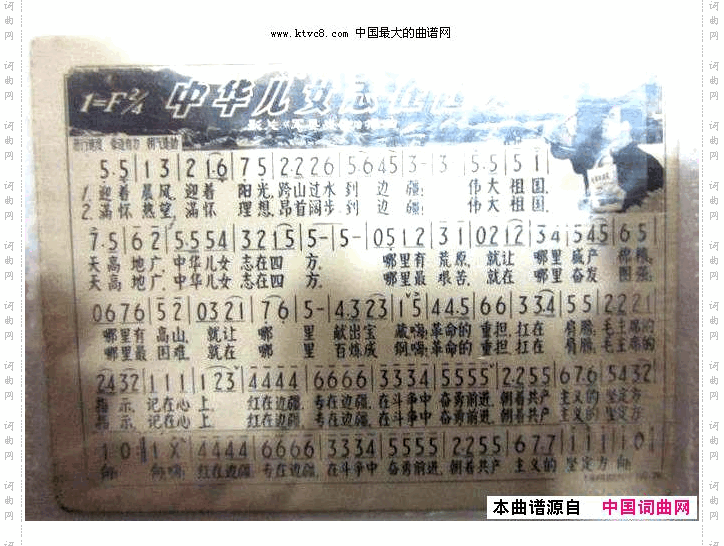 www.ktvc8.com 中国最大的曲谱网
1=F 2/4 中华儿女志在四
5.5 1 3 2 1.6 7 5 2.2 2 6 5.6 4 5 3- 3 5.5 5 1
1. 迎着 晨风, 迎着 阳光, 跨山过水 到 边 疆; 伟大 祖国,
2. 满怀 热望, 满怀 理想, 昂首阔步, 到 边 疆; 伟大 祖国,
7.5 6 2 5.5 5 4 3 2 1 5 5- 5- 0 5 1 2 3 1 0 2 1 2 3 4 5 4 5 6 5
天高 地广, 中华儿女 志在四 方. 哪里有 荒原, 就让 哪里 盛产 棉粮,
天高 地广, 中华儿女 志在四 方. 哪里最 艰苦, 就在 哪里 奋发 图强;
0 6 7 6 5 2 0 3 2 1 7 6 5- 4.3 2 3 1 5 4 4.5 6 6 3 3.4 5 5 2 2 2 1
哪里有 高山, 就让 哪 里 献出宝 藏; 嗨! 革命的 重担, 扛在 肩膀; 毛主席的
哪里最 困难, 就在 哪 里 百炼成 钢; 嗨! 革命的 重担, 扛在 肩膀; 毛主席的
2 4 3 2 1 1 1 1 2 3 4 4 4 4 6 6 6 6 3 3 3 4 5 5 5 5 2.2 5 5 6 7.6 5 4 3 2
指 示, 记在心 上. 红在边疆, 专在边疆, 在斗争中 奋勇前进, 朝着共产 主义的 坚定方
指 示, 记在心 上. 红在边疆, 专在边疆, 在斗争中 奋勇前进, 朝着共产 主义的 坚定方
1 0 1 X 4 4 4 4 6 6 6 6 3 3 3 4 5 5 5 5 2.2 5 5 6 7.7 1 1 1 1 0
向; 向; 嗨! 红在边疆, 专在边疆, 在斗争中 奋勇前进, 朝着共产 主义的 坚定方 向;
本曲谱源自 中国词曲网
词曲网